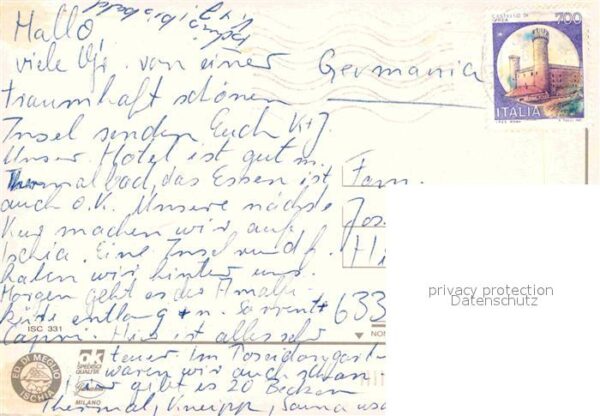 Hallo,
viele Gr. von einer
traumhaft schönen
Insel senden Euch K+J.
Unser Hotel ist gut m.
Thermalbad, das Essen ist
auch O.K. Unsere nächste
Kur machen wir auf
Ischia. Eine Inselrundf.
haben wir hinter uns.
Morgen geht es die Amalfi-
küste entlang + n. Sorrent +
Capri. Hier ist alles sehr
teuer. Im Poseidongarten
waren wir auch schon.
Hier gibt es 20 Becken
Thermal, Kneipp, Sauna usw
Germania
Fam.
Jos
Hi
633
CASTELLO DI
IVREA
700
ITALIA
privacy protection
Datenschutz
ISC 331
ED. DI MEGLIO
ISCHIA
ok
SPEDISCI
QUALITÀ
MILANO